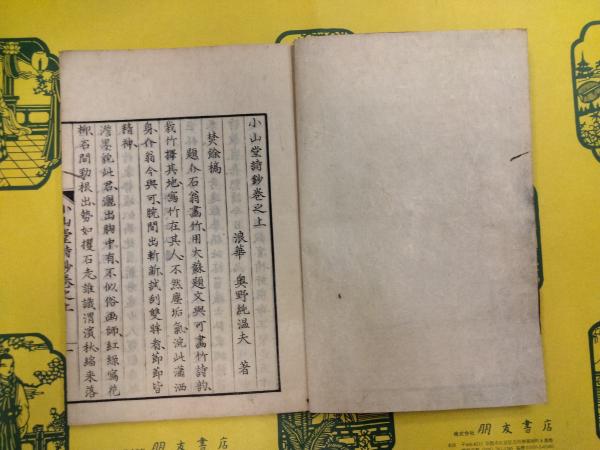 小山堂詩鈔卷之上
浪華 奧野純溫夫 著
焚餘稿
題介石翁畫竹、用大蘇題文與可畫竹詩韵、
栽竹擇其地、寫竹在其人、不然塵垢氣、涴此瀟洒
身、介翁今與可、腕間出斬新、試刮雙眸看、節節皆
精神、
澹墨貌此君、灑出胸中有、不似俗畫師、紅綠寫花
柳、石間勁根出、勢如攫石走、誰識渭濱秋、縮来落
小山堂詩鈔卷之上
株式会社 朋友書店